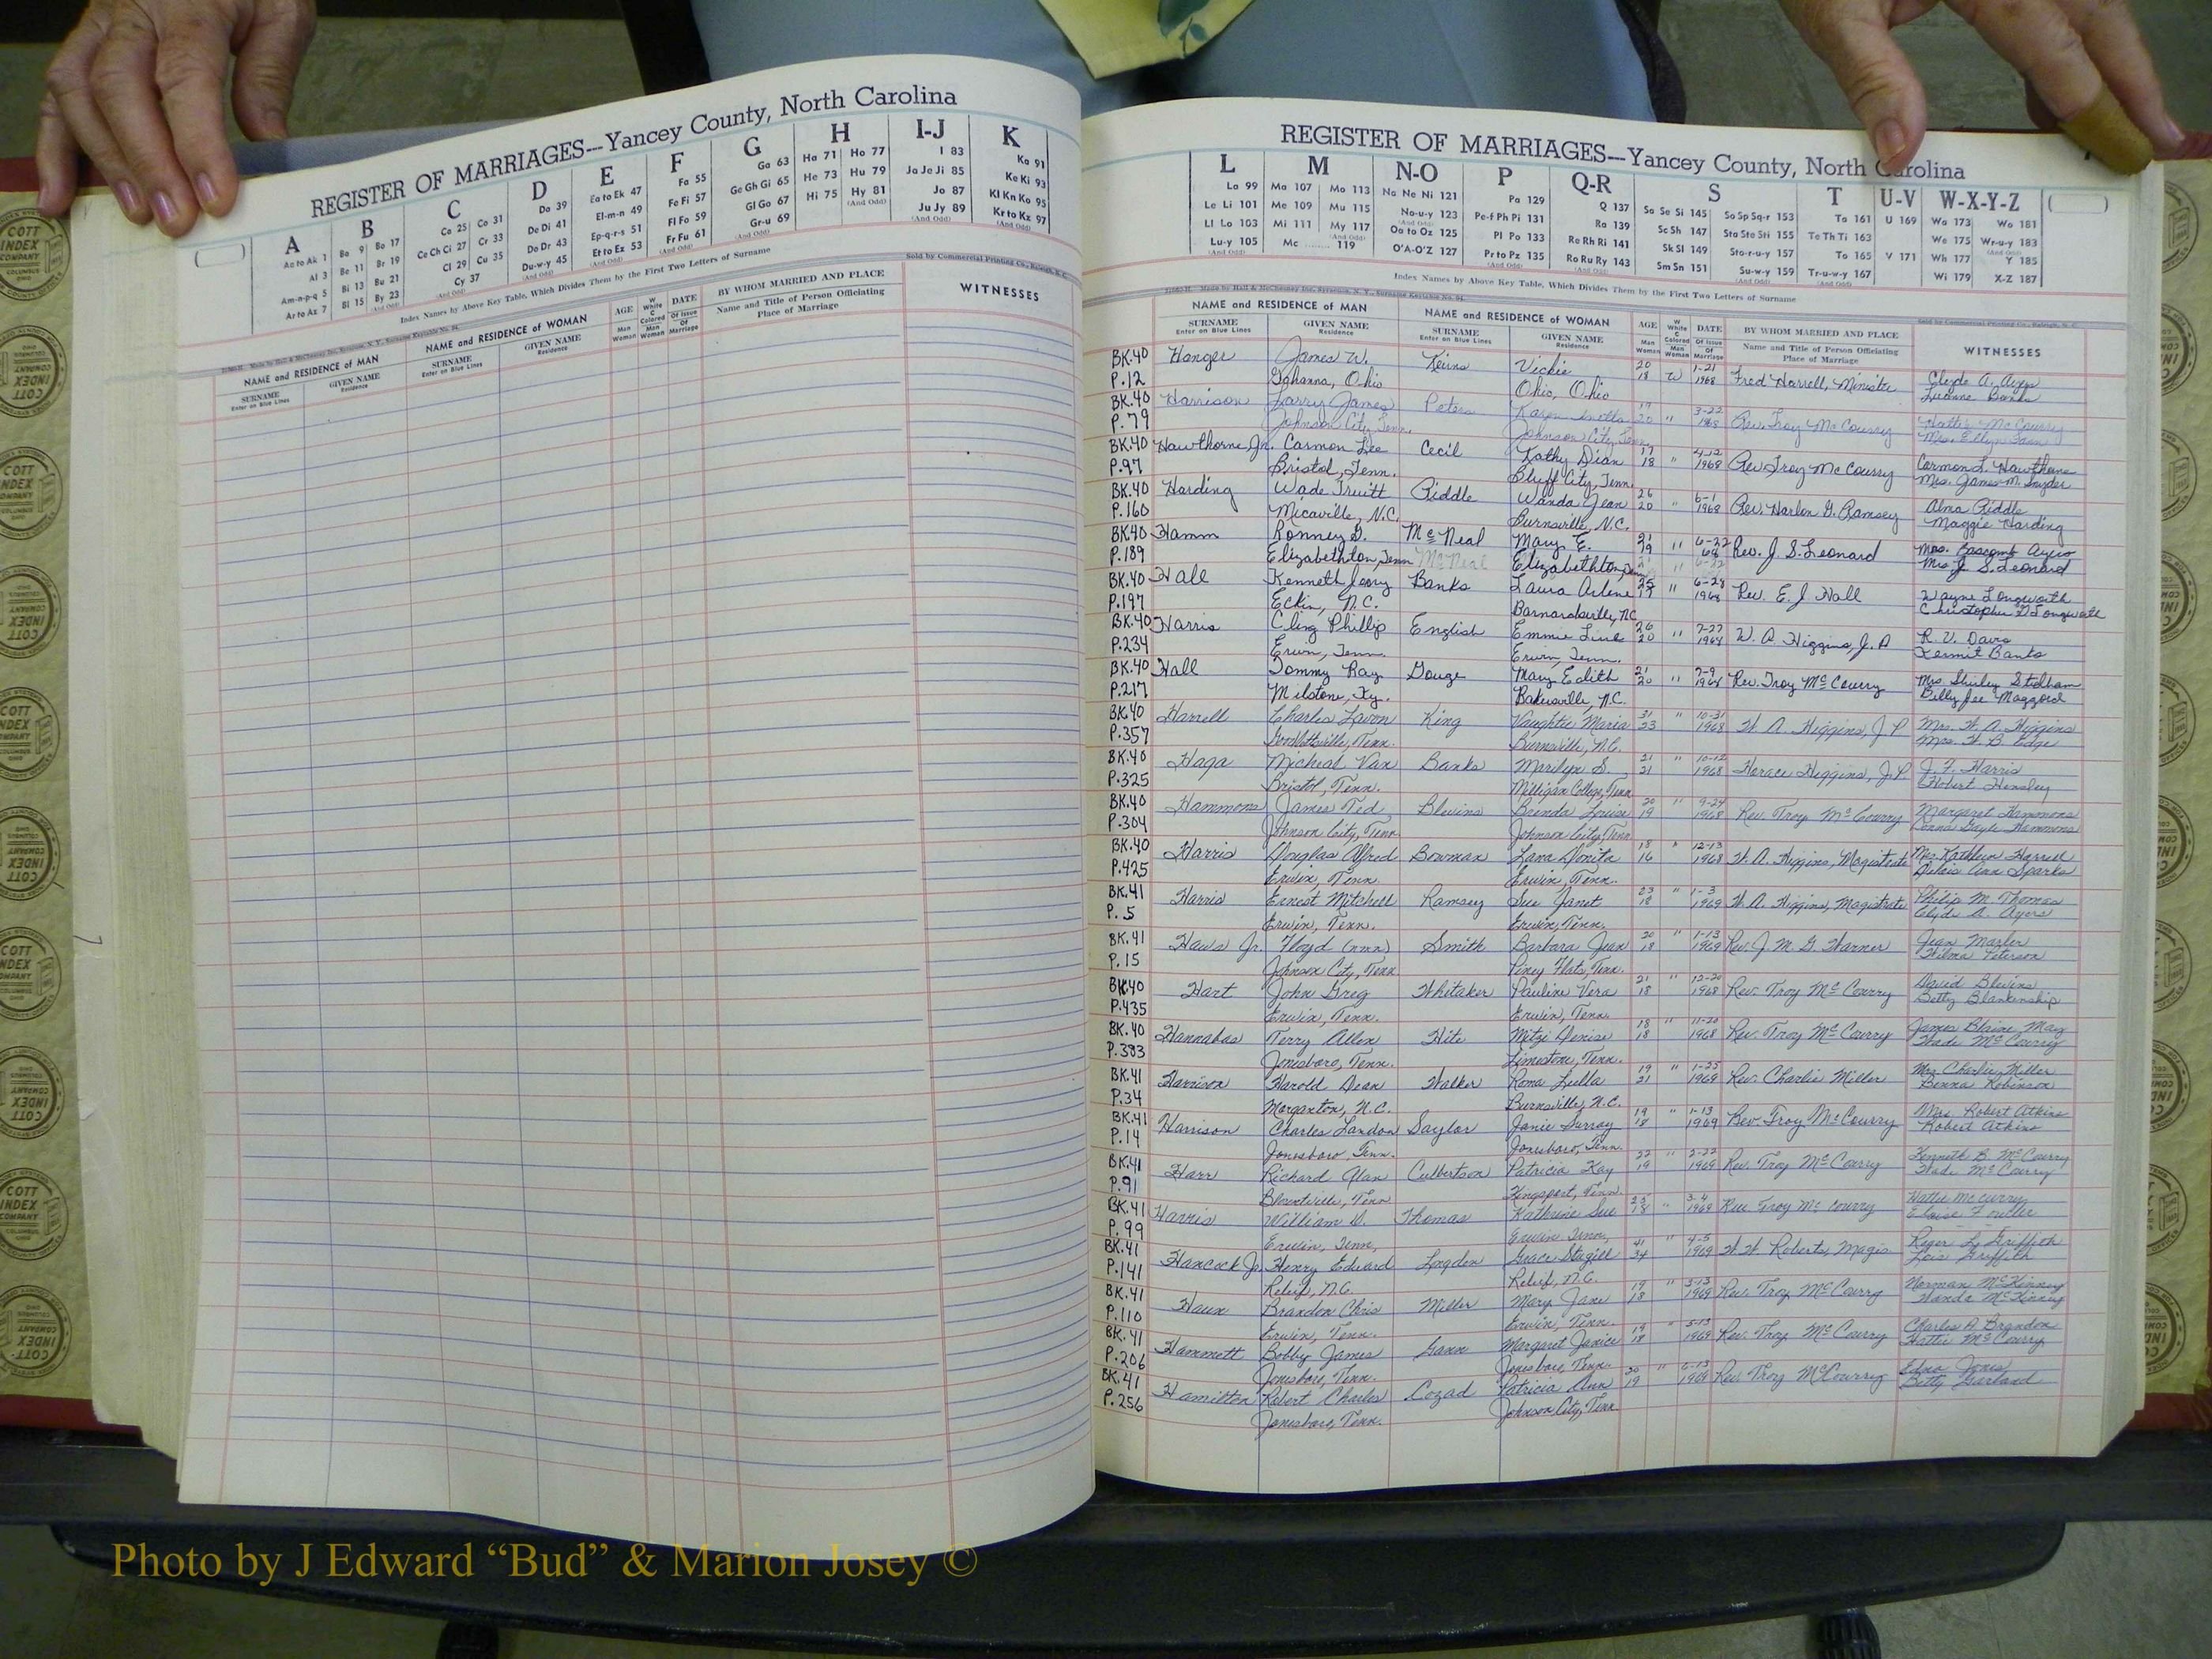 REGISTER OF MARRIAGES---Yancey County, North Carolina
A B C D E F G H I-J K
Aa to Ak 1 Ba 9 Bo 17 Ca 25 Co 31 Da 39 Ea to Ek 47 Fa 55 Ga 63 Ha 71 Ho 77 I 83 Ka 91
Al 3 Be 11 Br 19 Ce Ch Ci 27 Cr 33 De Di 41 El-m-n 49 Fe Fi 57 Ge Gh Gi 65 He 73 Hu 79 Ja Je Ji 85 Ke Ki 93
Am-n-p-q 5 Bi 13 Bu 21 Cl 29 Cu 35 Do Dr 43 Ep-q-r-s 51 Fl Fo 59 Gl Go 67 Hi 75 Hy 81 Jo 87 Kl Kn Ko 95
Ar to Az 7 Bl 15 By 23 Cy 37 Du-w-y 45 Et to Ez 53 Fr Fu 61 Gr-u 69 Ju Jy 89 Kr to Kz 97
Index Names by Above Key Table, Which Divides Them by the First Two Letters of Surname
Sold by Commercial Printing Co., Raleigh, N. C.
NAME and RESIDENCE of MAN NAME and RESIDENCE of WOMAN AGE W White C Colored DATE Of Issue BY WHOM MARRIED AND PLACE WITNESSES
SURNAME Enter on Blue Lines GIVEN NAME Residence SURNAME Enter on Blue Lines GIVEN NAME Residence Man Woman Man Woman Of Marriage Name and Title of Person Officiating Place of Marriage
REGISTER OF MARRIAGES---Yancey County, North Carolina
L M N-O P Q-R S T U-V W-X-Y-Z
La 99 Ma 107 Mo 113 Na Ne Ni 121 Pa 129 Q 137 Sa Se Si 145 So Sp Sq-r 153 Ta 161 U 169 Wa 173 Wo 181
Le Li 101 Me 109 Mu 115 No-u-y 123 Pe-f Ph Pi 131 Ra 139 Sc Sh 147 Sta Ste Sti 155 Te Th Ti 163 We 175 Wr-u-y 183
Ll Lo 103 Mi 111 My 117 Oa to Oz 125 Pl Po 133 Re Rh Ri 141 Sk Sl 149 Sto-r-u-y 157 To 165 V 171 Wh 177 Y 185
Lu-y 105 Mc 119 O'A-O'Z 127 Pr to Pz 135 Ro Ru Ry 143 Sm Sn 151 Su-w-y 159 Tr-u-w-y 167 Wi 179 X-Z 187
Index Names by Above Key Table, Which Divides Them by the First Two Letters of Surname
NAME and RESIDENCE of MAN NAME and RESIDENCE of WOMAN AGE W White C Colored DATE Of Issue BY WHOM MARRIED AND PLACE WITNESSES
SURNAME Enter on Blue Lines GIVEN NAME Residence SURNAME Enter on Blue Lines GIVEN NAME Residence Man Woman Man Woman Of Marriage Name and Title of Person Officiating Place of Marriage
BK.40 Hanger James W. Keirns Vickie 20 1-21
P.12 Gahanna, Ohio Ohio, Ohio 18 W 1968 Fred Harrell, Minister Clyde A. Ayers
BK.40 Harrison Larry James Peters Karen 19 3-22
P.79 Johnson City, Tenn. Johnson City, Tenn. 20 " 1968 Rev. Troy McCourry Hattie McCourry
BK.40 Hawthorne, Jr. Carmon Lee Cecil Kathy Dian 17 4-12
P.97 Bristol, Tenn. Bluff City, Tenn. 18 " 1968 Rev Troy McCourry Carmon L. Hawthorne Mrs. James M. Snyder
BK.40 Harding Wade Truitt Riddle Wanda Jean 26 6-1
P.160 Micaville, N.C. Burnsville, N.C. 20 " 1968 Rev. Harlon G. Ramsey Alma Riddle Maggie Harding
BK.40 Hamm Ronney G. McNeal Mary E. 21 6-22
P.189 Elizabethton, Tenn McNeal Elizabethton, Tenn 19 " 68 Rev. J. S. Leonard Mrs. Bascomb Ayers Mrs J. S. Leonard
BK.40 Hall Kenneth Jeory Banks Laura Arlene 25 6-28
P.197 Eckin, N.C. Barnardsville, NC 17 " 1968 Rev. E. J Hall Wayne Longworth Christopher D Longworth
BK.40 Harris Cling Phillip English Emmie Line 26 7-27
P.234 Erwin, Tenn. Erwin, Tenn. 20 " 1968 W. A. Higgins, J. P R. V. Davis Kermit Banks
BK.40 Hall Tommy Ray Gouge Mary Edith 21 7-9
P.217 Milstone, Ky. Bakersville, N.C. 20 " 1968 Rev. Troy McCourry Mrs. Shirley Stidham Billy Joe Maggord
BK.40 Harrell Charles Lavon King Vaughtie Maria 31 10-31
P.357 Goodlettsville, Tenn. Burnsville, N.C. 23 " 1968 W. A. Higgins, J P Mrs. W. A. Higgins Mrs. W. B. Edge
BK.40 Haga Micheal Van Banks Marilyn S. 21 10-12
P.325 Bristol, Tenn. Milligan College, Tenn 21 " 1968 Horace Higgins, J.P J. F. Harris Robert Hensley
BK.40 Hammons James Ted Blevins Brenda Louise 20 9-24
P.304 Johnson City, Tenn Johnson City, Tenn 19 " 1968 Rev. Troy McCourry Margaret Hammons Donna Gayle Hammons
BK.40 Harris Douglas Alfred Bowman Lana Donita 18 12-13
P.425 Erwin, Tenn. Erwin, Tenn. 16 " 1968 W. A. Higgins, Magistrate Mrs. Kathleen Harrell Ann Sparks
BK.41 Harris Ernest Mitchell Ramsey Sue Janet 23 1-3
P. 5 Erwin, Tenn. Erwin, Tenn. 18 " 1969 W. A. Higgins, Magistrate Philip M. Thomas Clyde A. Ayers
BK.41 Haws Jr. Floyd (nmn) Smith Barbara Jean 20 1-13
P. 15 Johnson City, Tenn Piney Flats, Tenn. 18 " 1969 Rev. J. M. G. Warner Jean Marler Wilma Peterson
BK.40 Hart John Greg Whitaker Pauline Vera 21 12-20
P.435 Erwin, Tenn. Erwin, Tenn. 18 " 1968 Rev. Troy McCourry David Blevins Betty Blankenship
BK.40 Hannabas Terry Allen Hite Mitzi Denise 18 11-20
P.383 Jonesboro, Tenn. Limestone, Tenn. 18 " 1968 Rev. Troy McCourry James Blaine May Wade McCourry
BK.41 Harrison Harold Dean Walker Roma Luella 19 1-25
P.34 Morganton, N.C. Burnsville, N.C. 21 " 1969 Rev. Charlie Miller Mrs Charlie Miller Benna Robinson
BK.41 Harrison Charles Landon Saylor Janie Surray 19 1-13
P.14 Jonesboro, Tenn. Jonesboro, Tenn. 18 " 1969 Rev. Troy McCourry Mrs. Robert Atkins Robert Atkins
BK.41 Harr Richard Alan Culbertson Patricia Kay 22 2-22
P.91 Blountville, Tenn Kingsport, Tenn. 19 " 1969 Rev. Troy McCourry Kenneth B. McCourry Wade McCourry
BK.41 Harris William D. Thomas Kathrine Sue 25 3-4
P. 99 Erwin, Tenn, Erwin Tenn, 18 " 1969 Rev. Troy McCourry Hattie McCurry Elaise Fowler
BK.41 Hancock Jr. Henry Edward Logdon Grace Stegill 41 4-5
P.141 Relief, N.C. Relief, N.C. 34 " 1969 W. W. Roberts, Magis Roger L. Griffith Lois Griffith
BK.41 Haun Brandon Chris Miller Mary Jane 19 3-13
P.110 Erwin, Tenn. Erwin, Tenn. 18 " 1969 Rev. Troy McCourry Norman McKinney Wanda McKinney
BK.41 Hammett Bobby James Gann Margaret Janice 19 5-13
P.206 Jonesboro, Tenn. Jonesboro, Tenn. 18 " 1969 Rev. Troy McCourry Charles A Brandon Hattie McCourry
BK.41 Hamilton Robert Charles Cozad Patricia Ann 20 6-13
P.256 Jonesboro, Tenn. Johnson City, Tenn 19 " 1969 Rev. Troy McCourry Edna Jones Betty Garland
Photo by J Edward “Bud” & Marion Josey ©